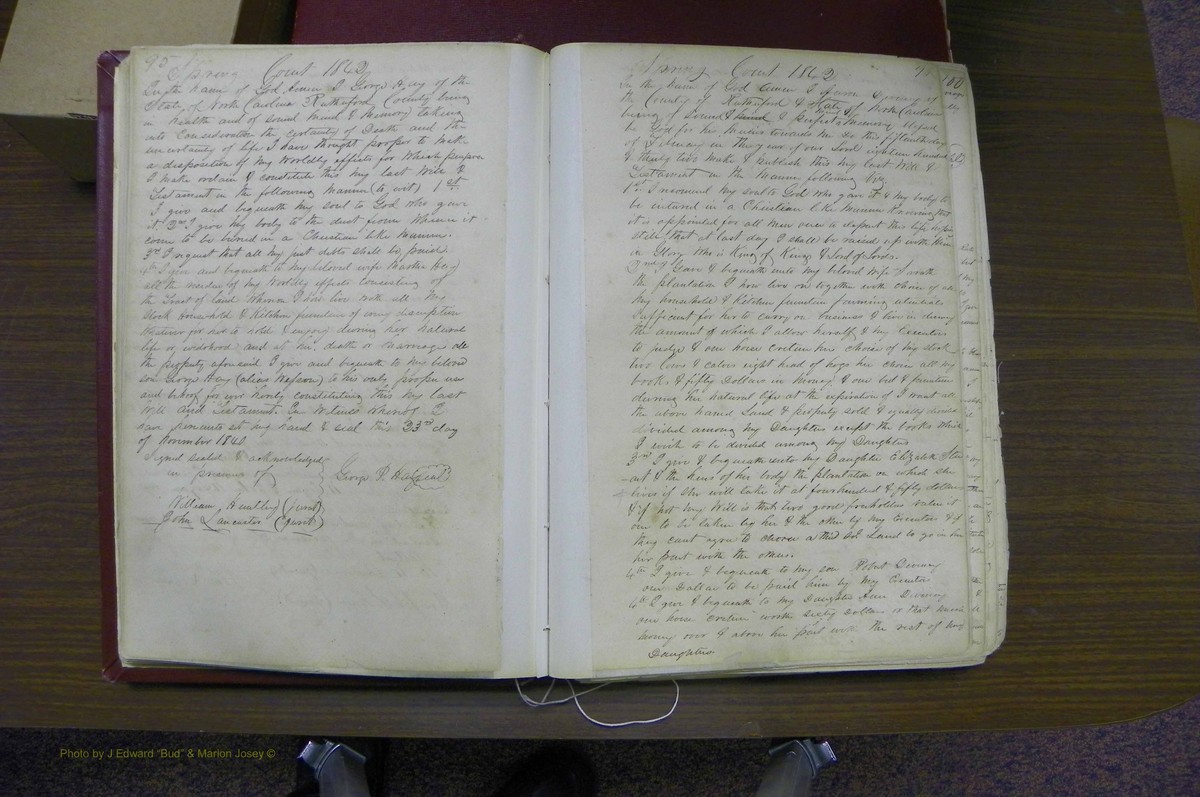 95 Spring Court 1842
In the name of God Amen I George Hay of the
State of North Carolina & Rutherford County being
in health and of sound mind & memory taking
into consideration the certainty of Death and the
uncertainty of life I have thought proper to make
a disposition of my worldly effects for which purpose
I make ordain & constitute this my last Will &
Testament in the following manner (to wit) 1st
I give and bequeath my soul to God who gave
it 2nd I give my body to the dust from whence it
came to be buried in a Christian like manner.
3rd I request that all my just debts shall be paid
4th I give and bequeath to my beloved wife Martha Hay
all the residue of my worldly effects consisting of
the Tract of Land whereon I now live with all my
Stock Household & Kitchen furniture of every discription
for her to hold & enjoy during her natural
life or widowhood and at her death or marriage all
the property aforesaid I give and bequeath to my beloved
son George Hay (alias ) to his only proper use
and behoof for ever Hereby constituting this my last
Will and Testament. In Witness whereof I
have hereunto set my hand & seal this 23rd day
of November 1840
Signed sealed & acknowledged
in presence of George P. Hay (seal)
William (jurat)
John Lancaster (jurat)
Spring Court 1842 96
In the name of God Amen I of
the County of Rutherford & State of North Carolina
being of sound mind & perfect memory blessed
be God for his mercies towards me do this fifteenth day
of February in the year of our Lord eighteen hundred
& thirty two make & publish this my last Will &
Testament in the manner following Viz
1st I recommend my soul to God who gave it & my body to
be intered in a Christian like manner knowing that
it is appointed for all men once to depart this life
still that at last day I shall be raised up with Him
in Glory who is King of Kings & Lord of Lords.
2nd I Give & bequeath unto my beloved wife Sarah
the plantation I now live on together with choice of all
my household & Kitchen furniture farming utensials
sufficent for her to carry on business & live in during
the amount of which I allow herself & my Executor
to judge & one horse creture her choice of my stock
two cows & calves eight head of hogs her choice all my
books & fifty Dollars in money & one bed & furniture
during her natural life at the expiration of I want all
the above named Land & property sold & equally divided
divided among my Daughters except the books which
I wish to be divided among my Daughters
3rd I give & bequeath unto my Daughter Elizabeth
& the heirs of her body the plantation on which she
lives if she will take it at four hundred & fifty dollars
& if not my Will is that two good freeholders value it
one to be taken by her & the other by my Executor & if
they cant agree to choose a third Land to go in
her part with the others.
4th I give & bequeath to my son Robert
one Dollar to be paid him by my Executor
4th I give & bequeath to my Daughter
one horse creture worth sixty Dollars or that much
money over & above her part with the rest of my
Daughters
100
Photo by J Edward "Bud" & Marion Josey ©